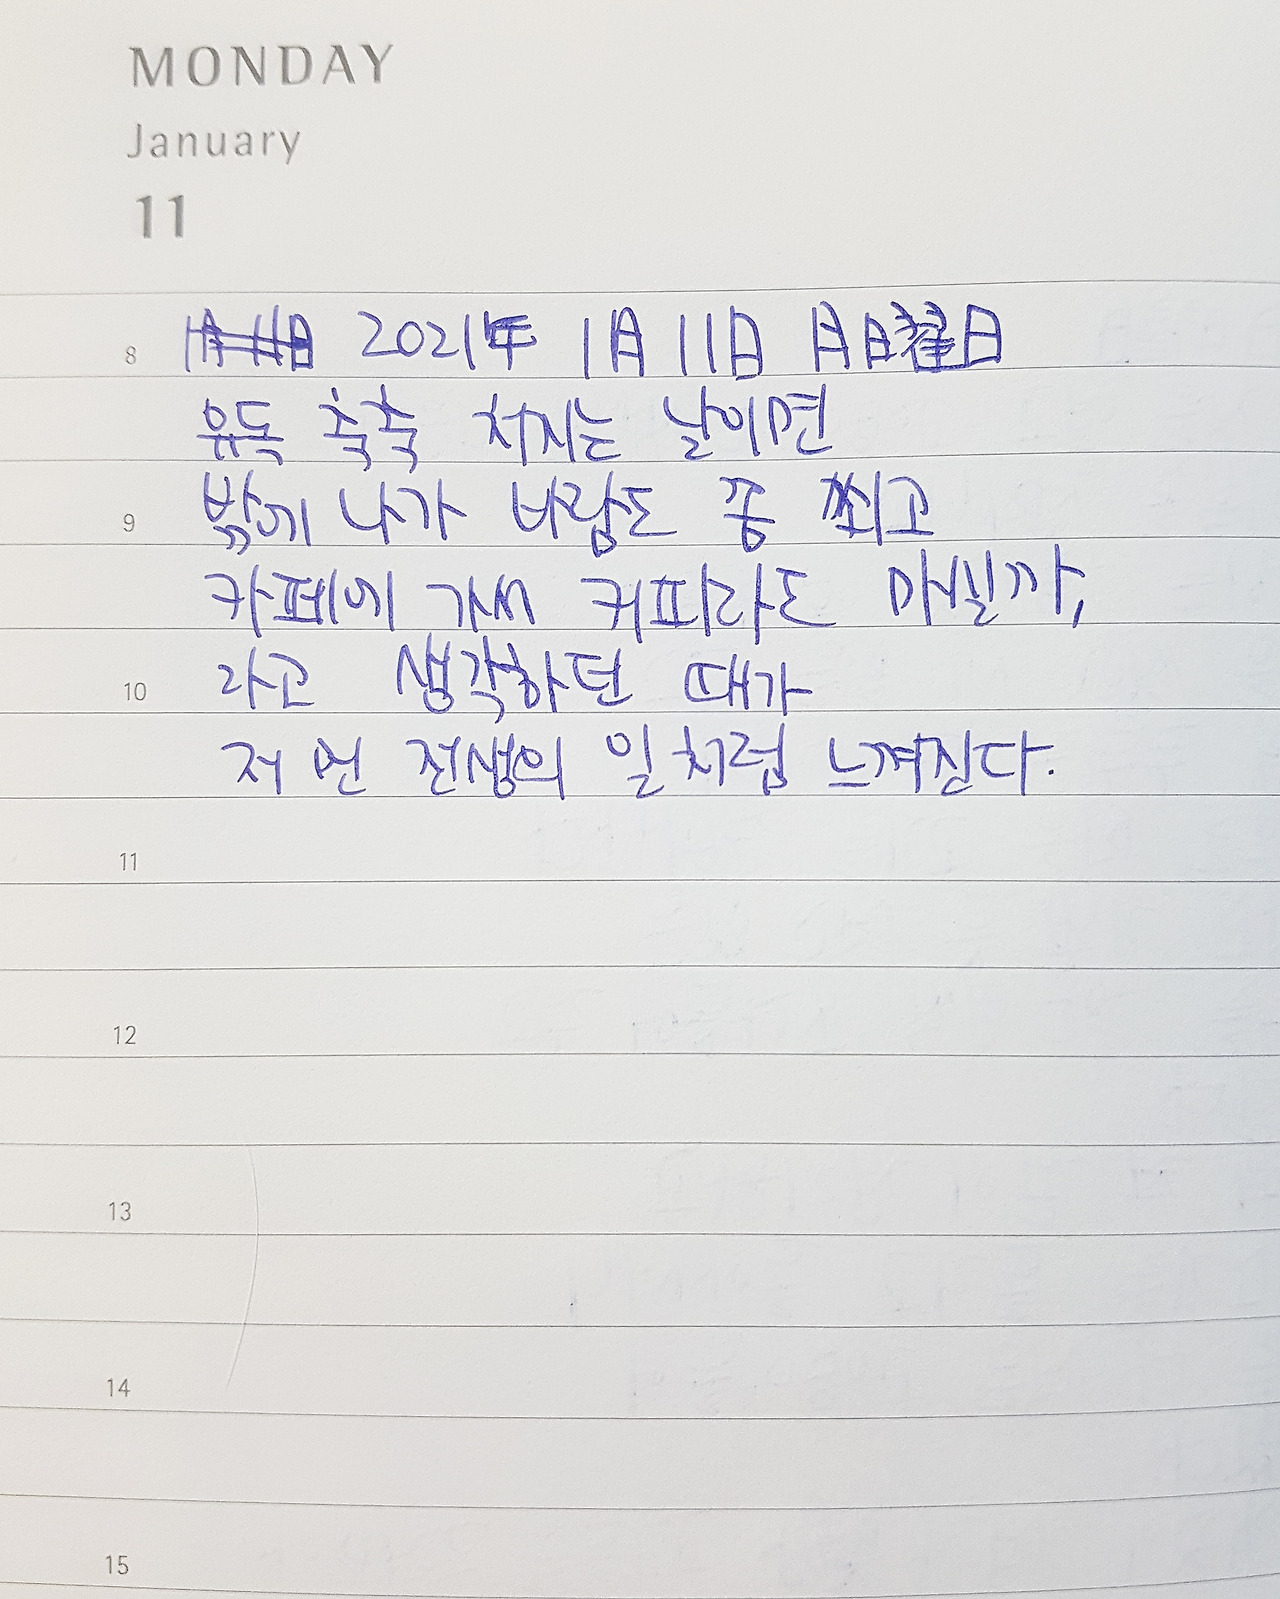 MONDAY
January
11
8 2021年 1月 11日 月曜日
유독 축축 처지는 날이면
9 밖에 나가 바람도 좀 쐬고
카페에 가서 커피라도 마실까,
10 라고 생각하던 때가
저 먼 전생의 일처럼 느껴진다.
11
12
13
14
15